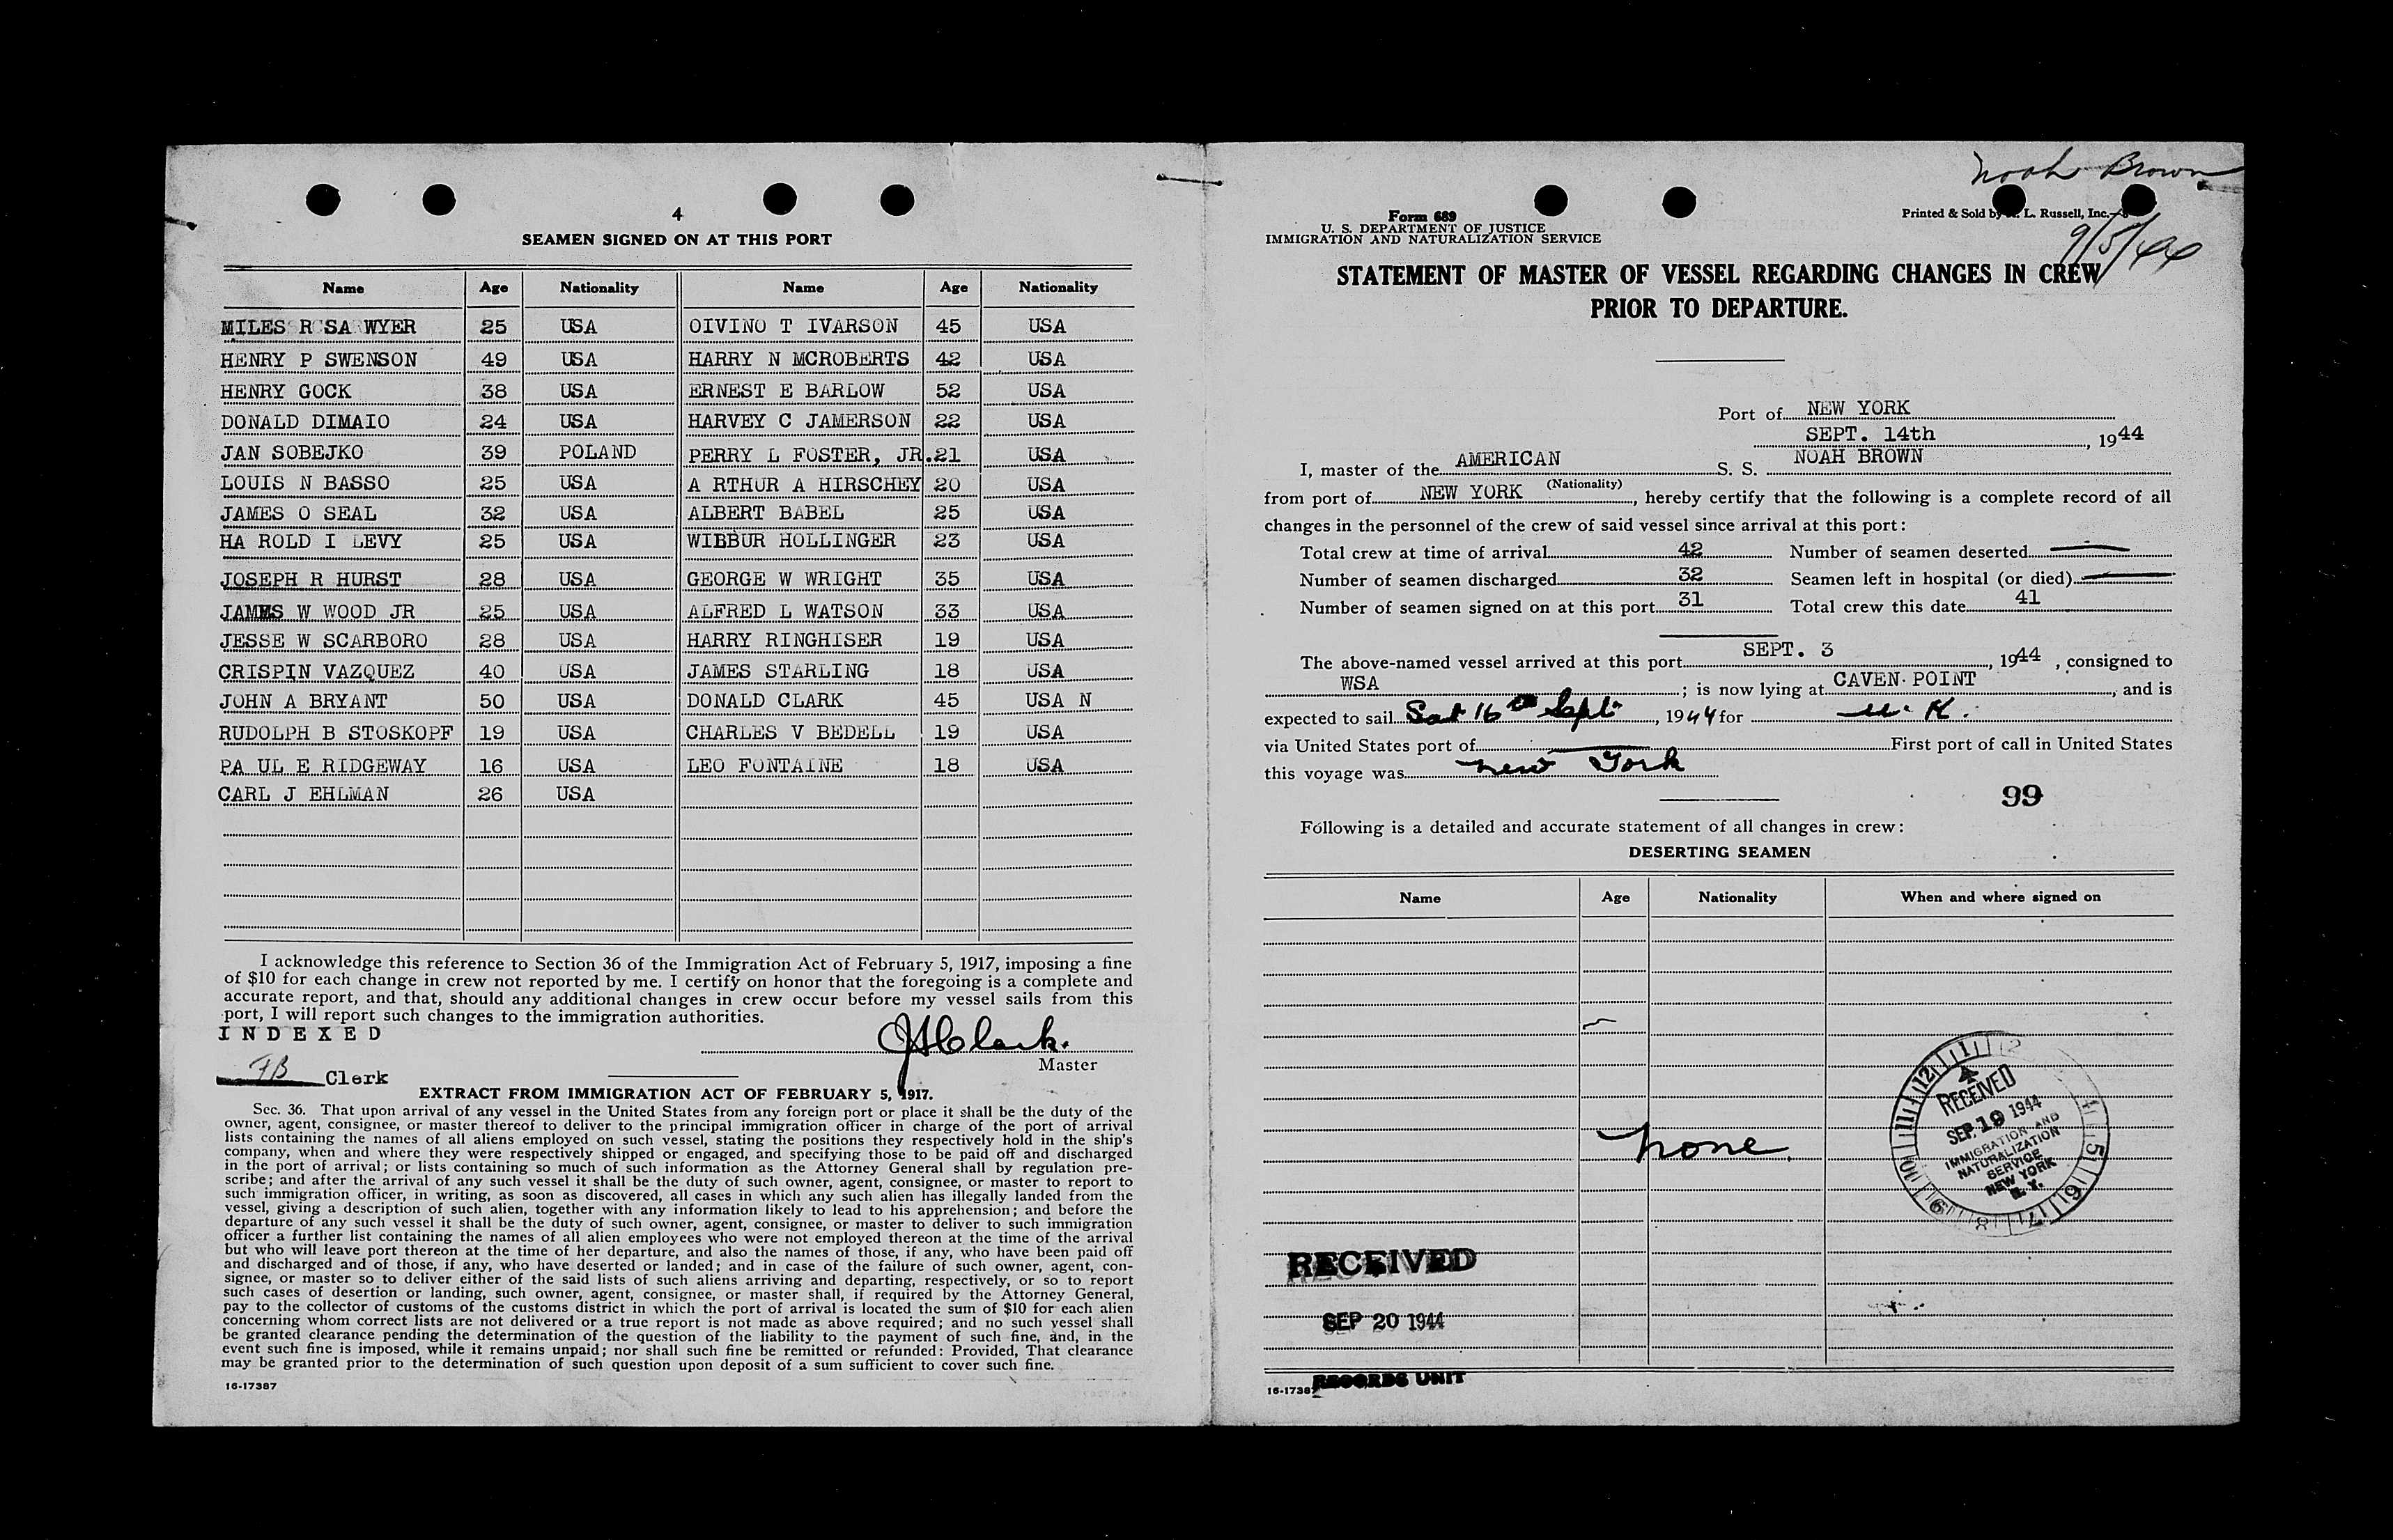 4
SEAMEN SIGNED ON AT THIS PORT
Name Age Nationality Name Age Nationality
MILES R SAWYER 25 USA OIVINO T IVARSON 45 USA
HENRY P SWENSON 49 USA HARRY N MCROBERTS 42 USA
HENRY GOCK 38 USA ERNEST E BARLOW 52 USA
DONALD DIMAIO 24 USA HARVEY C JAMERSON 22 USA
JAN SOBEJKO 39 POLAND PERRY L FOSTER, JR. 21 USA
LOUIS N BASSO 25 USA A RTHUR A HIRSCHEY 20 USA
JAMES O SEAL 32 USA ALBERT BABEL 25 USA
HA ROLD I LEVY 25 USA WILBUR HOLLINGER 23 USA
JOSEPH R HURST 28 USA GEORGE W WRIGHT 35 USA
JAMES W WOOD JR 25 USA ALFRED L WATSON 33 USA
JESSE W SCARBORO 28 USA HARRY RINGHISER 19 USA
CRISPIN VAZQUEZ 40 USA JAMES STARLING 18 USA
JOHN A BRYANT 50 USA DONALD CLARK 45 USA N
RUDOLPH B STOSKOPF 19 USA CHARLES V BEDELL 19 USA
PA UL E RIDGEWAY 16 USA LEO FONTAINE 18 USA
CARL J EHLMAN 26 USA
I acknowledge this reference to Section 36 of the Immigration Act of February 5, 1917, imposing a fine
of $10 for each change in crew not reported by me. I certify on honor that the foregoing is a complete and
accurate report, and that, should any additional changes in crew occur before my vessel sails from this
port, I will report such changes to the immigration authorities.
INDEXED
JHClark.
Master
FB Clerk
EXTRACT FROM IMMIGRATION ACT OF FEBRUARY 5, 1917.
Sec. 36. That upon arrival of any vessel in the United States from any foreign port or place it shall be the duty of the
owner, agent, consignee, or master thereof to deliver to the principal immigration officer in charge of the port of arrival
lists containing the names of all aliens employed on such vessel, stating the positions they respectively hold in the ship's
company, when and where they were respectively shipped or engaged, and specifying those to be paid off and discharged
in the port of arrival; or lists containing so much of such information as the Attorney General shall by regulation pre-
scribe; and after the arrival of any such vessel it shall be the duty of such owner, agent, consignee, or master to report to
such immigration officer, in writing, as soon as discovered, all cases in which any such alien has illegally landed from the
vessel, giving a description of such alien, together with any information likely to lead to his apprehension; and before the
departure of any such vessel it shall be the duty of such owner, agent, consignee, or master to deliver to such immigration
officer a further list containing the names of all alien employees who were not employed thereon at the time of the arrival
but who will leave port thereon at the time of her departure, and also the names of those, if any, who have been paid off
and discharged and of those, if any, who have deserted or landed; and in case of the failure of such owner, agent, con-
signee, or master so to deliver either of the said lists of such aliens arriving and departing, respectively, or so to report
such cases of desertion or landing, such owner, agent, consignee, or master shall, if required by the Attorney General,
pay to the collector of customs of the customs district in which the port of arrival is located the sum of $10 for each alien
concerning whom correct lists are not delivered or a true report is not made as above required; and no such vessel shall
be granted clearance pending the determination of the question of the liability to the payment of such fine, and, in the
event such fine is imposed, while it remains unpaid; nor shall such fine be remitted or refunded: Provided, That clearance
may be granted prior to the determination of such question upon deposit of a sum sufficient to cover such fine.
16-17387
Noah Brown
9/5/44
Form 689
U. S. DEPARTMENT OF JUSTICE
IMMIGRATION AND NATURALIZATION SERVICE
Printed & Sold by L. Russell, Inc.
STATEMENT OF MASTER OF VESSEL REGARDING CHANGES IN CREW
PRIOR TO DEPARTURE.
Port of NEW YORK
SEPT. 14th, 1944
I, master of the AMERICAN S. S. NOAH BROWN
(Nationality)
from port of NEW YORK, hereby certify that the following is a complete record of all
changes in the personnel of the crew of said vessel since arrival at this port:
Total crew at time of arrival 42 Number of seamen deserted
Number of seamen discharged 32 Seamen left in hospital (or died)
Number of seamen signed on at this port 31 Total crew this date 41
The above-named vessel arrived at this port SEPT. 3, 1944, consigned to
WSA; is now lying at CAVEN POINT, and is
expected to sail Sat 16th Sept, 1944 for U. K.
via United States port of First port of call in United States
this voyage was New York
99
Following is a detailed and accurate statement of all changes in crew:
DESERTING SEAMEN
Name Age Nationality When and where signed on
None
RECEIVED
SEP 19 1944
IMMIGRATION AND
NATURALIZATION
SERVICE
NEW YORK
N. Y.
RECEIVED
SEP 20 1944
RECORDS UNIT
16-17387